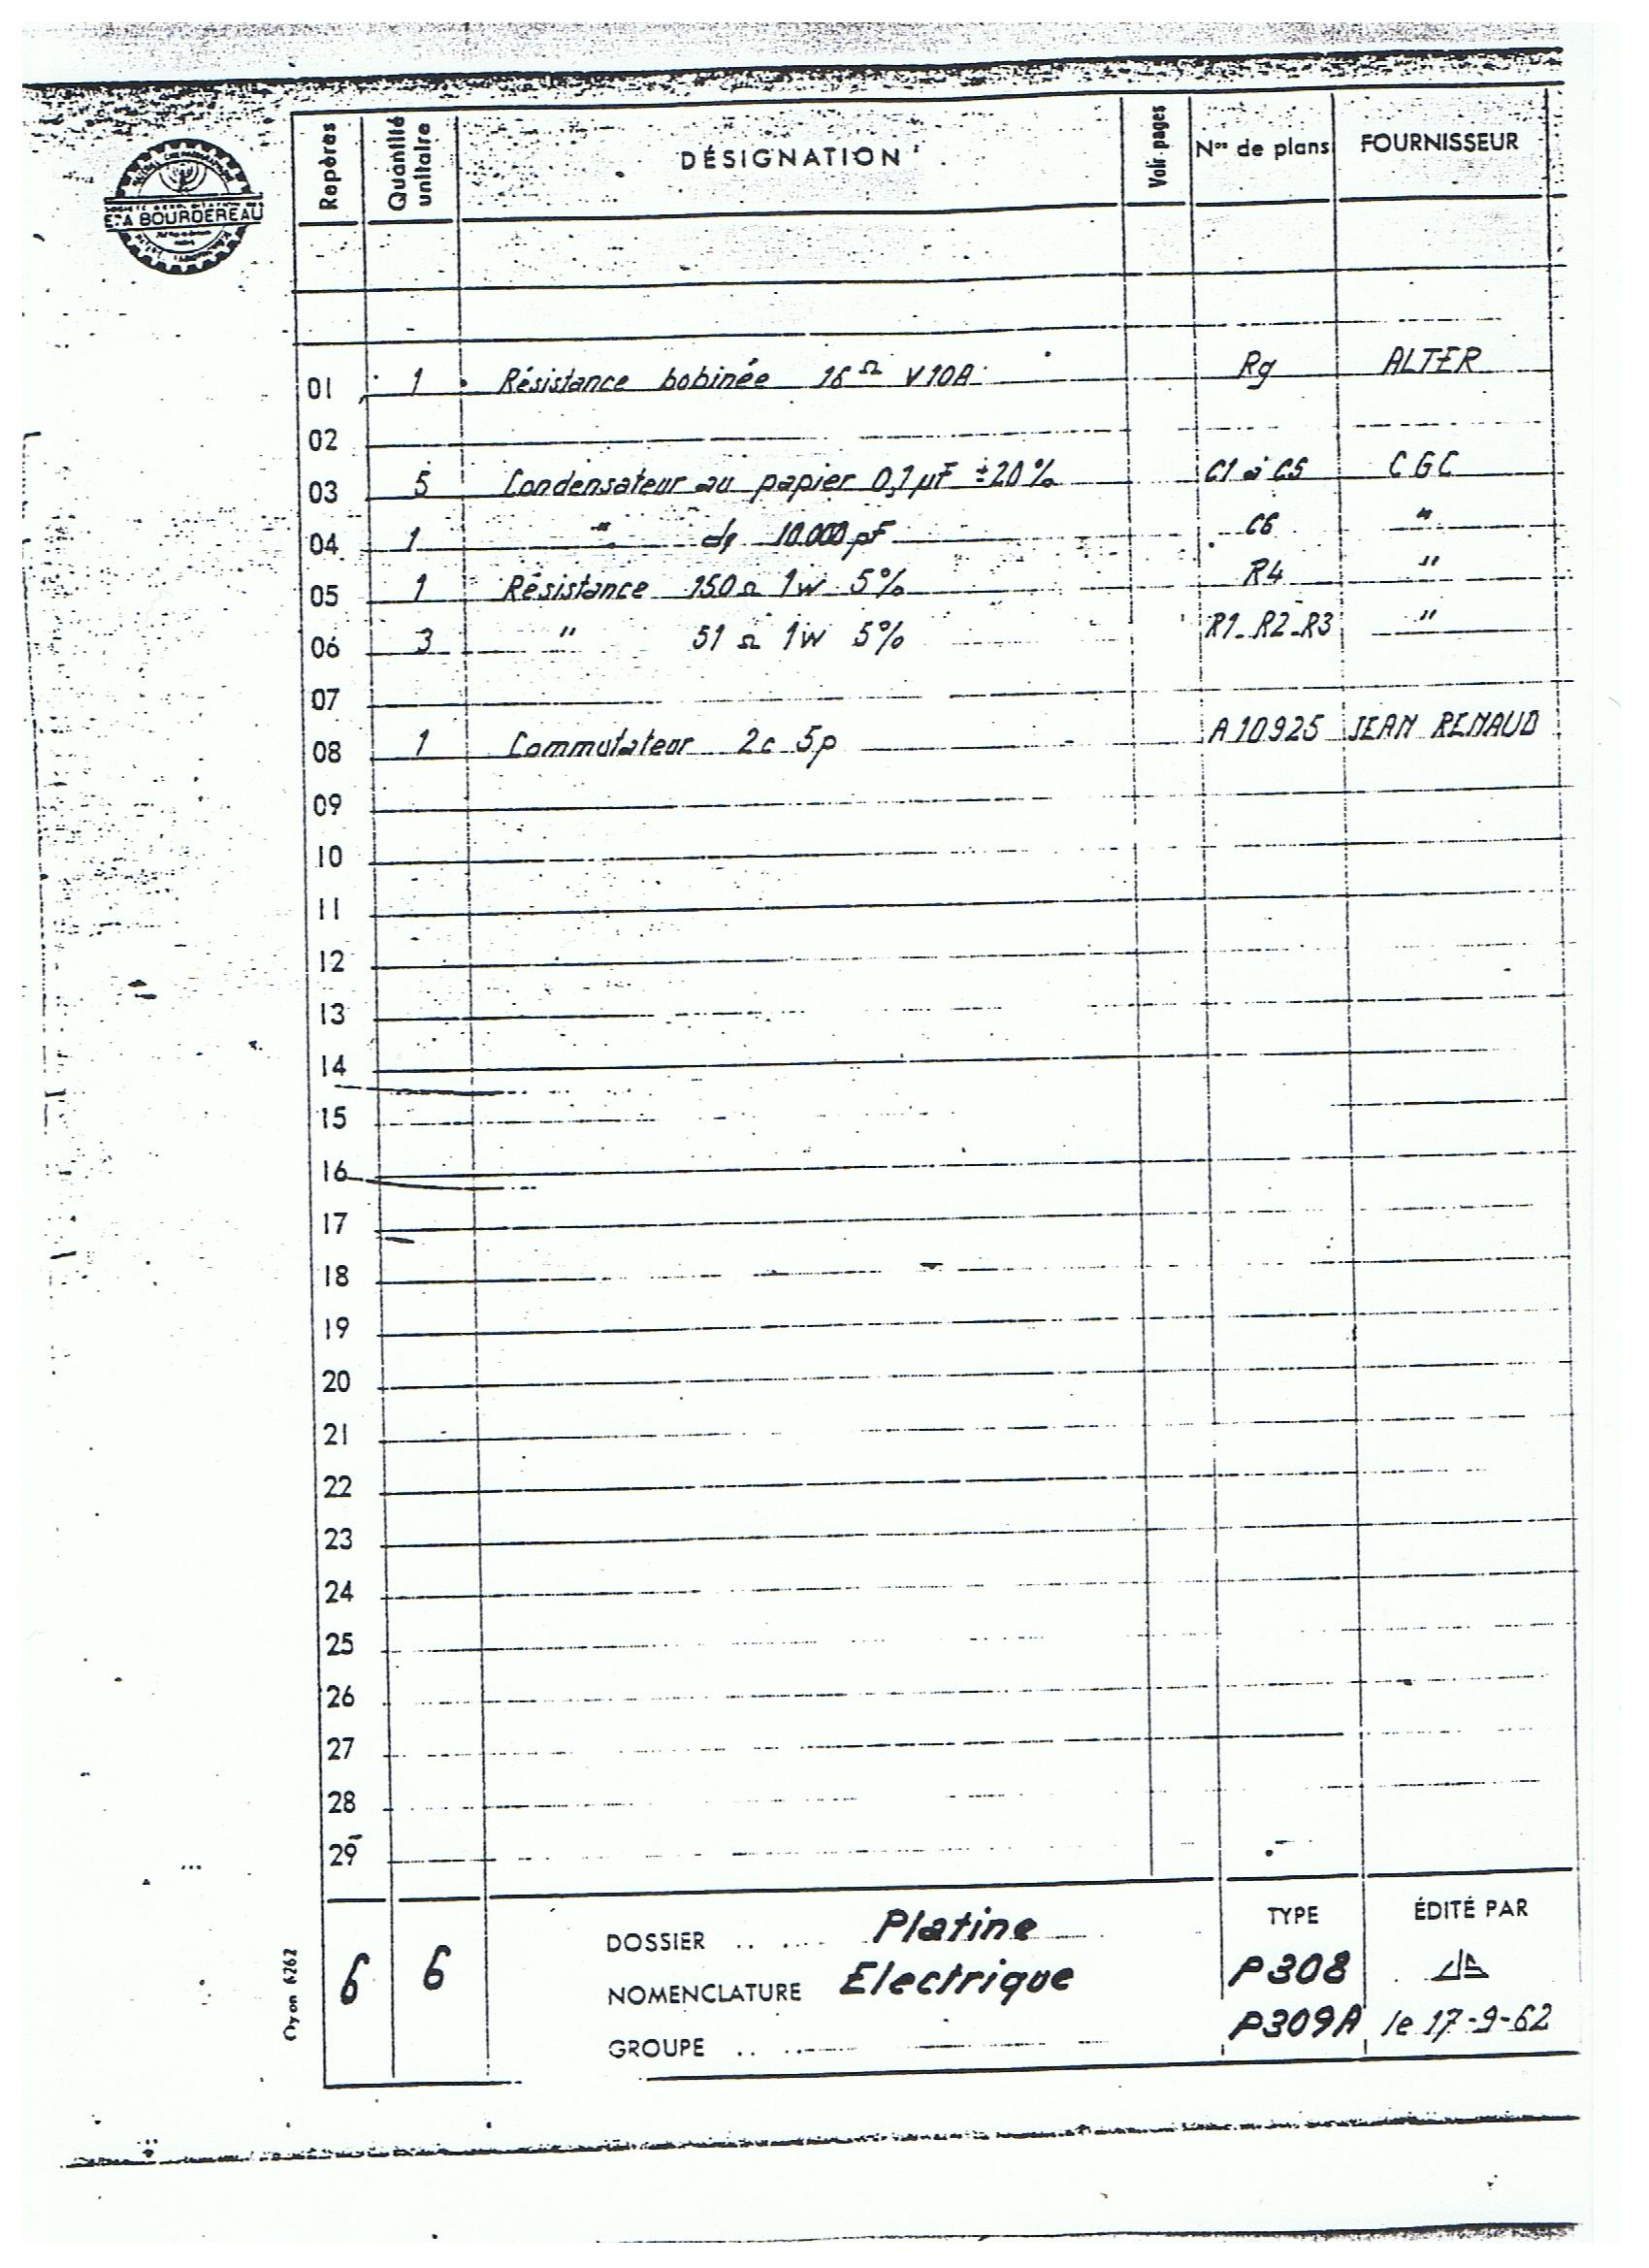 Repères Quantité unitaire DÉSIGNATION Voir pages Nos de plans FOURNISSEUR
A BOURDEREAU
01 1 Résistance bobinée 16 Ω V10A Rg ALTER
02
03 5 Condensateur au papier 0,1 µF ±20% C1 à C5 CGC
04 1 " d° 10.000 pF C6 "
05 1 Résistance 150 Ω 1w 5% R4 "
06 3 " 51 Ω 1w 5% R1-R2-R3 "
07
08 1 Commutateur 2c 5p A10925 JEAN RENAUD
09
10
11
12
13
14
15
16
17
18
19
20
21
22
23
24
25
26
27
28
29
6 6 DOSSIER Platine TYPE ÉDITÉ PAR
NOMENCLATURE Electrique P308
GROUPE P309A le 17-9-62
Oyon 6262